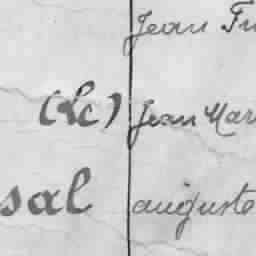 Jean Fr
(Le) Jean Mar
sal auguste